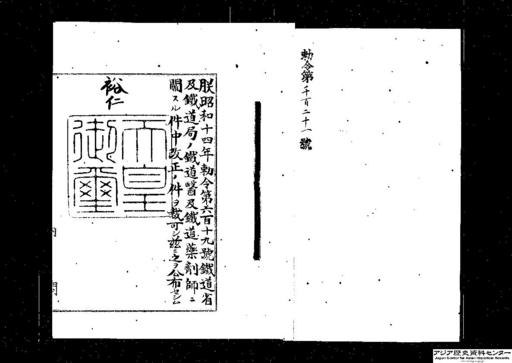 勅令第千百二十一號
朕昭和十四年勅令第六百十九號鐵道省
及鐵道局ノ鐵道醫及鐵道藥劑師ニ
關スル件中改正ノ件ヲ裁可シ茲ニ之ヲ公布セシム
裕仁
天皇
御璽
内
閣
アジア歴史資料センター
Japan Center for Asian Historical Records